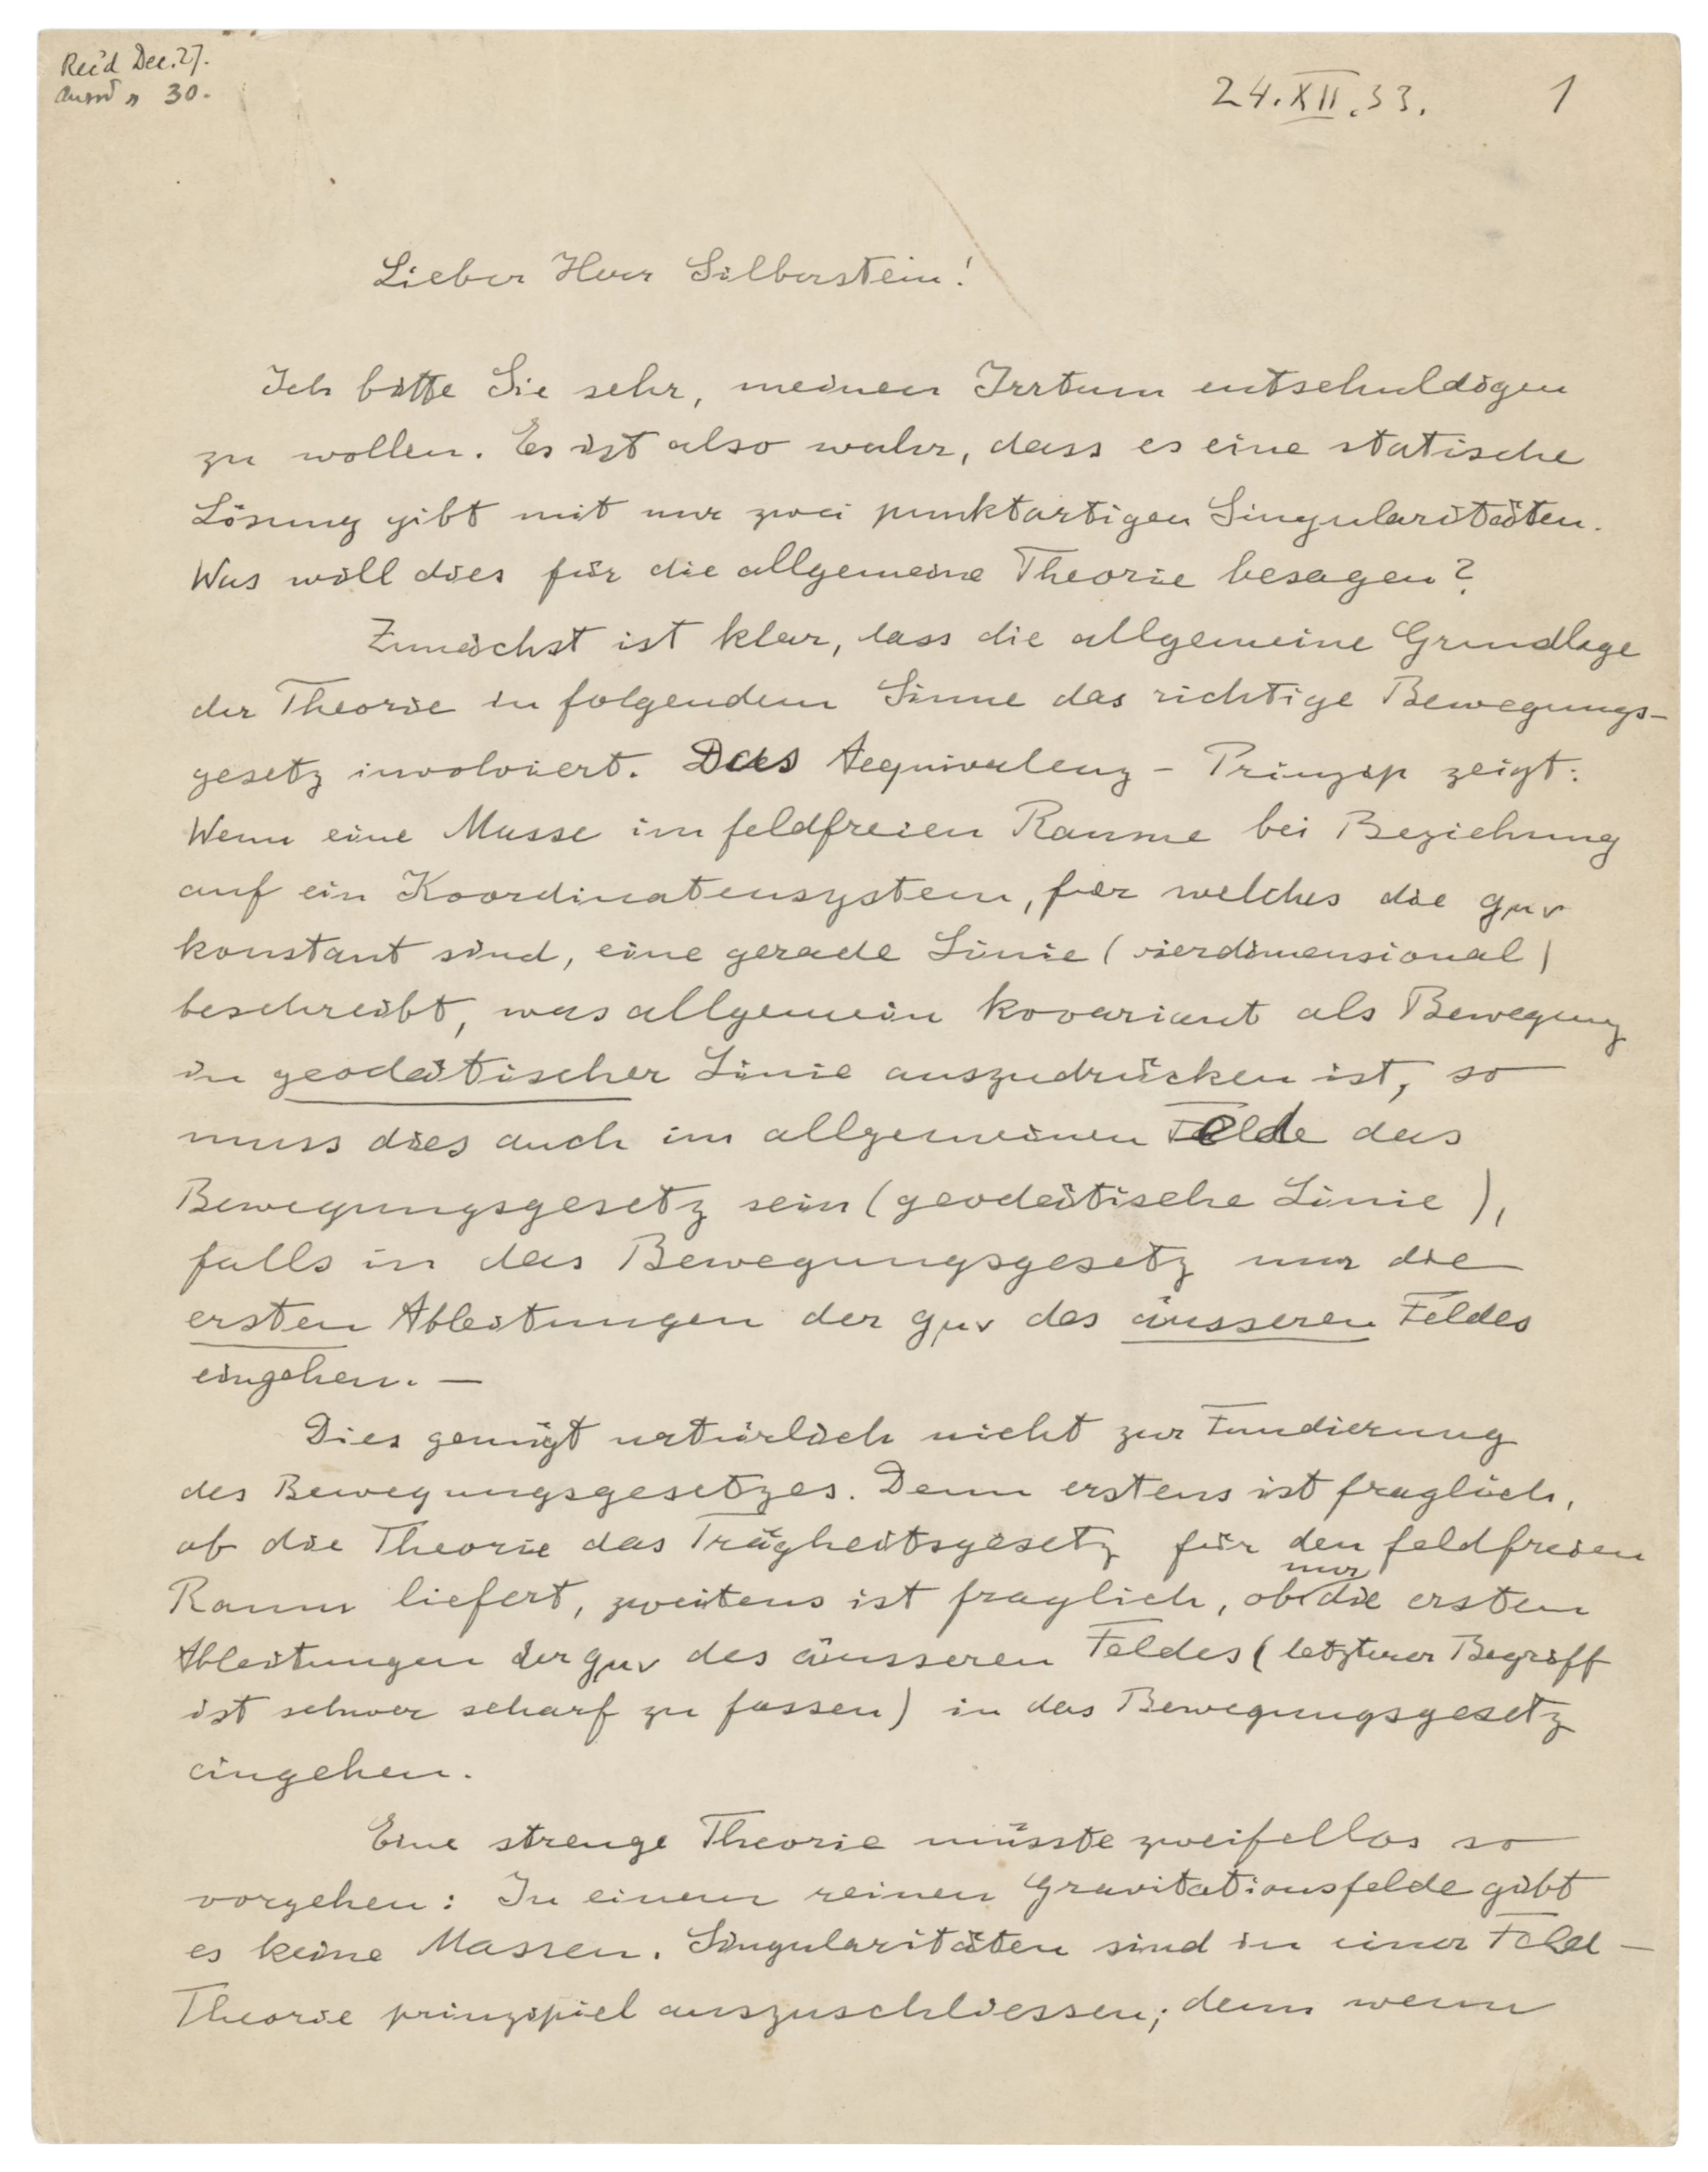 Rec'd Dec. 27.
Answ'd " 30.
24. XII. 33.
1
Lieber Herr Silberstein!
Ich bitte Sie sehr, meinen Irrtum entschuldigen
zu wollen. Es ist also wahr, dass es eine statische
Lösung gibt mit nur zwei punktartigen Singularitäten.
Was will dies für die allgemeine Theorie besagen?
Zunächst ist klar, dass die allgemeine Grundlage
der Theorie in folgendem Sinne das richtige Bewegungs-
gesetz involviert. Das Aequivalenz-Prinzip zeigt:
Wenn eine Masse im feldfreien Raume bei Beziehung
auf ein Koordinatensystem, für welches die gμν
konstant sind, eine gerade Linie (vierdimensional)
beschreibt, was allgemein kovariant als Bewegung
in geodätischer Linie auszudrücken ist, so
muss dies auch im allgemeinen Felde das
Bewegungsgesetz sein (geodätische Linie),
falls in das Bewegungsgesetz nur die
ersten Ableitungen der gμν des äusseren Feldes
eingehen. —
Dies genügt natürlich nicht zur Fundierung
des Bewegungsgesetzes. Denn erstens ist fraglich,
ob die Theorie das Trägheitsgesetz für den feldfreien
Raum liefert, zweitens ist fraglich, ob nur die ersten
Ableitungen der gμν des äusseren Feldes (letzterer Begriff
ist schwer scharf zu fassen) in das Bewegungsgesetz
eingehen.
Eine strenge Theorie müsste zweifellos so
vorgehen: In einem reinen Gravitationsfelde gibt
es keine Massen. Singularitäten sind in einer Feld-
Theorie prinzipiel auszuschliessen; denn wenn